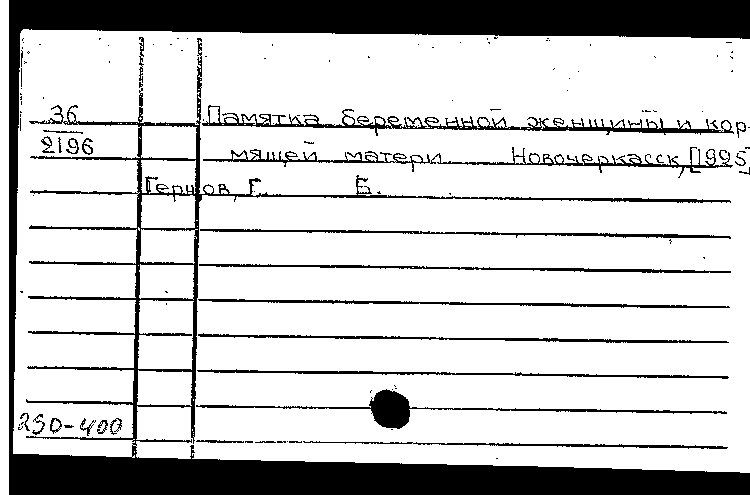 36
2196
Памятка беременной женщины и кор-
мящей матери Новочеркасск, [1925]
Герцов, Г. Б.
250-400